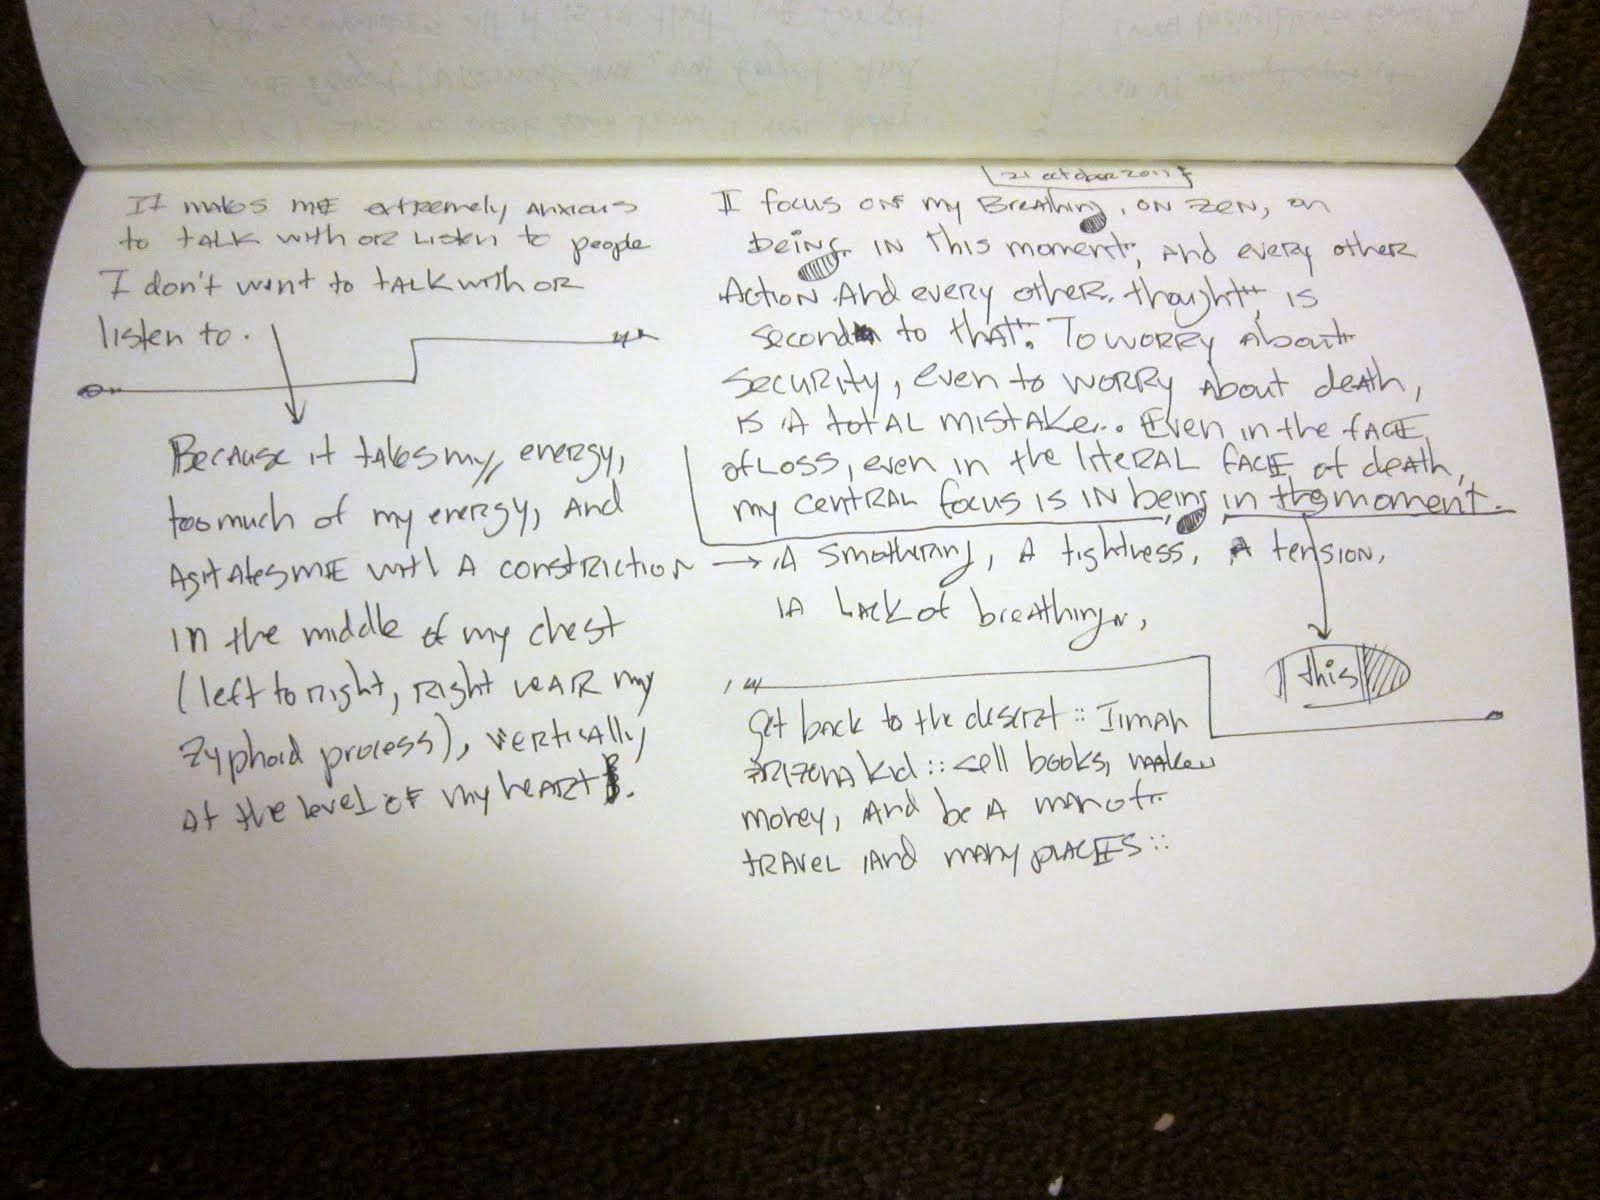 It makes me extremely anxious
to talk with or listen to people
I don't want to talk with or
listen to.
Because it takes my energy,
too much of my energy, and
agitates me with a constriction
in the middle of my chest
(left to right, right near my
zyphoid process), vertically
at the level of my heart.
21 october 2011
I focus on my Breathing, on zen, on
being in this moment, and every other
action and every other thought is
second to that. To worry about
security, even to worry about death,
is a total mistake... Even in the face
of loss, even in the literal face of death,
my central focus is in being in the moment.
a smothering, a tightness, a tension,
a lack of breathing,
this
Get back to the desert :: I'm an
Arizona kid :: sell books, make
money, and be a man of
travel and many places ::